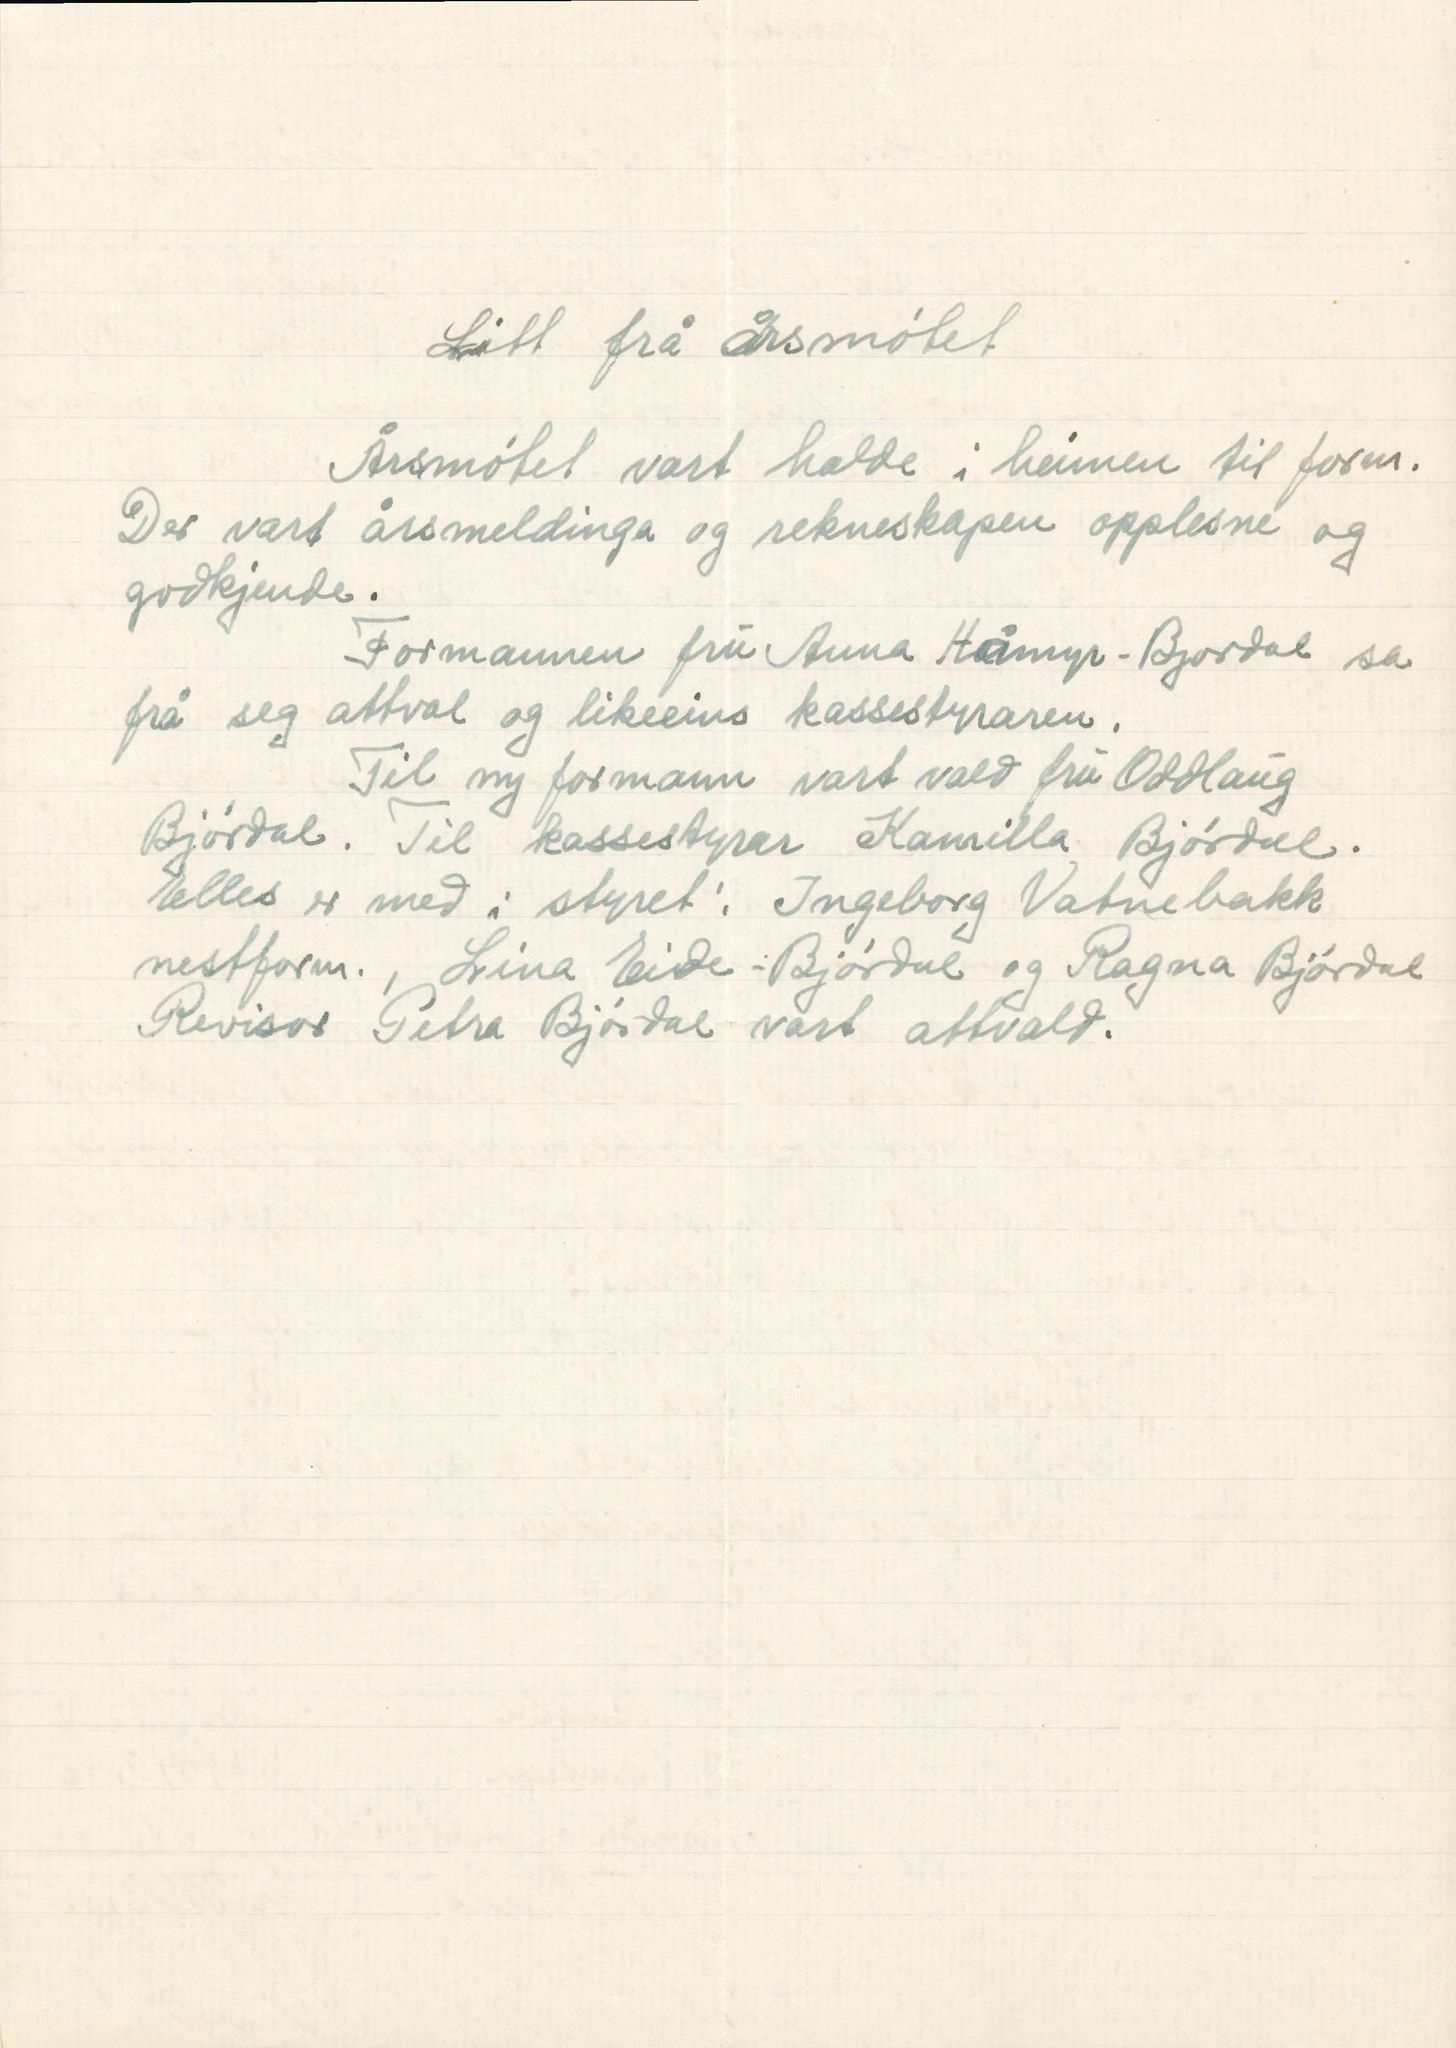 Litt frå årsmótet
Årsmótet vart halde i heimen til form.
Der vart årsmeldinga og rekneskapen opplesne og
godkjende.
Formannen frü Anna Håmyr-Bjordal sa
frå seg attval og likeeins kassestyraren.
Til ny formann vart vald frü Oddlaüg
Bjórdal. Til kassestyrar Kamilla Bjórdal.
Elles er med i styret: Ingeborg Vatnebakk
nestform., Lina Eide-Bjórdal og Ragna Bjórdal
Revisor Petra Bjórdal vart attvald.